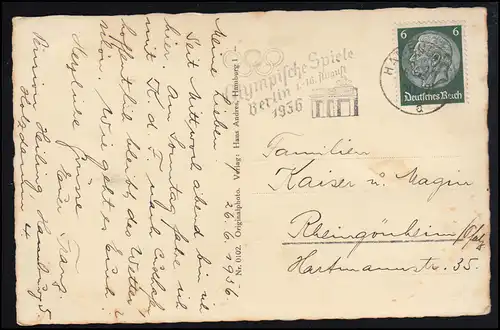 Meine Lieben!
Seit Mittwoch abend bin ich
hier. Am Sonntag fahre ich
mit K. d. F. nach
hoffentlich bleibt das Wetter
schön. Wie geht es Euch?
Herzliche Grüsse
Euer Franz.
Pension Heiling, Hamburg 5,
Holzdamm 4
26.6.1936.
Nr. 0102. Originalphoto. Verlag: Hans Andres, Hamburg 1
Olympische Spiele
Berlin 1.-16. August
1936
6 6
Deutsches Reich
HAM
a
Familien
Kaiser u. Magin
Rheingönheim/Pfalz
Hartmannstr. 35.